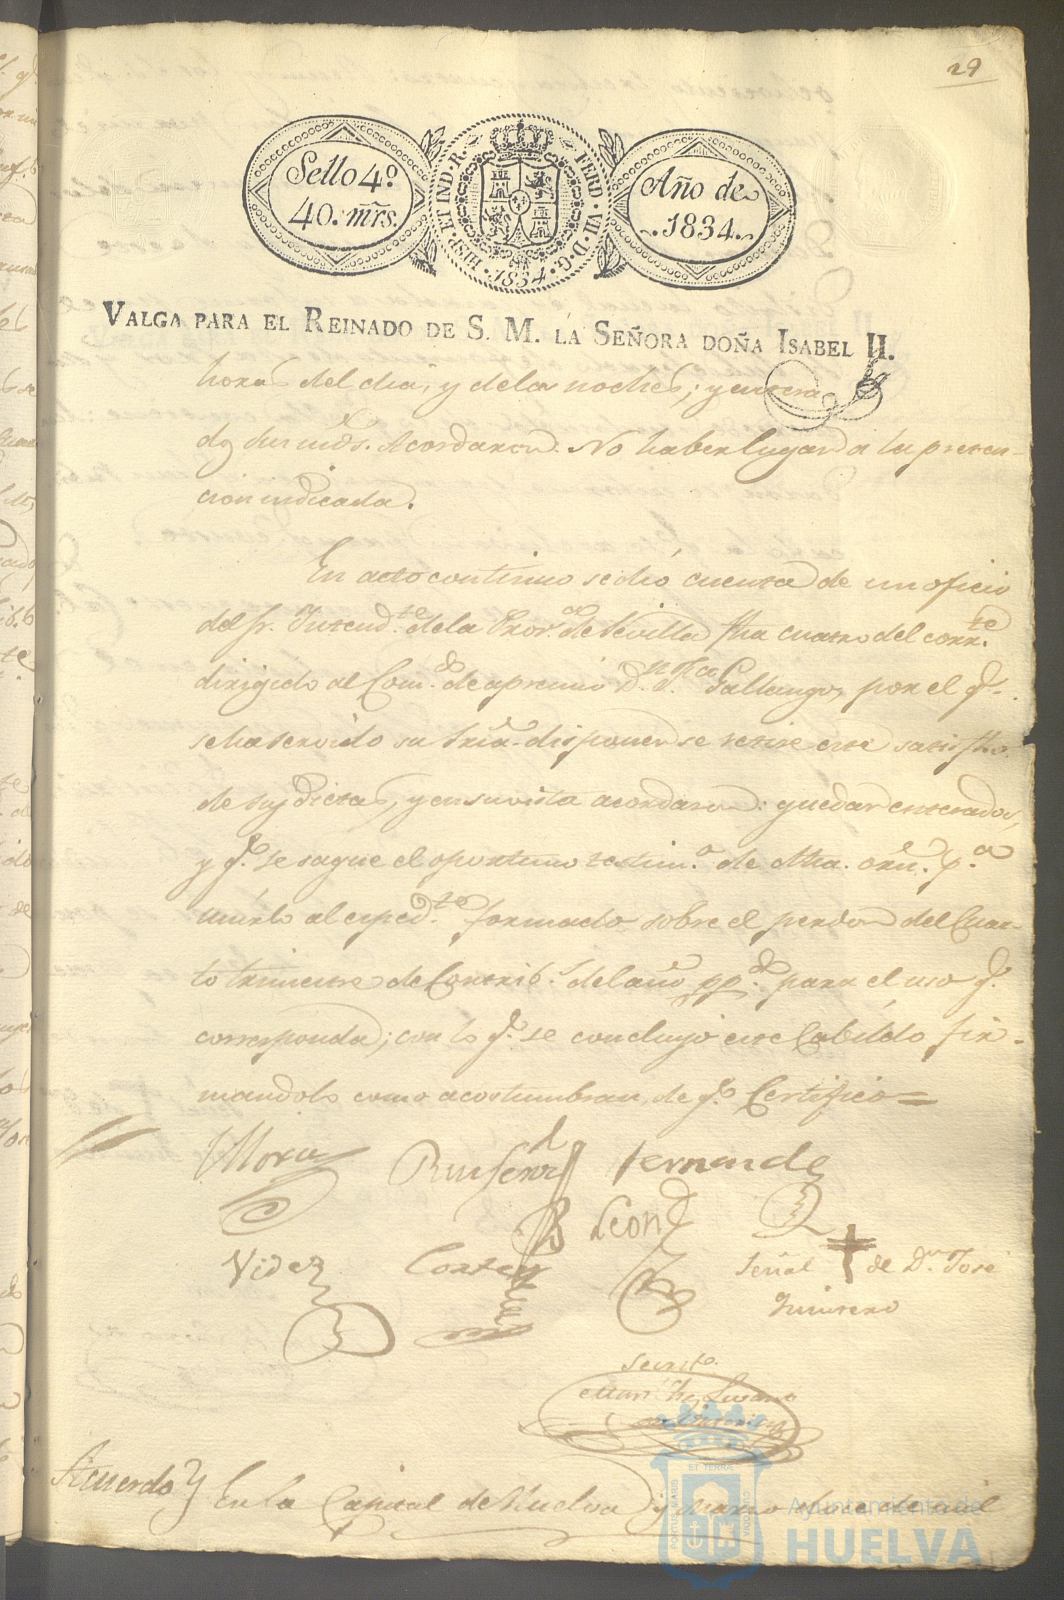 29
Sello 4º
40. mrs.
HISP. ET IND. R. FERD. VII. D. G. 1834.
Año de
1834.
VALGA PARA EL REINADO DE S. M. LA SEÑORA DOÑA ISABEL II.
horas del dia, y de la noche; y entera
dos sus mds. Acordaron. No haber lugar a la preten-
cion indicada.
En acto continuo se dió cuenta de un oficio
del Sr. Intendte. de la Prova. de Sevilla fha cuatro del corrte.
dirigido al Comdo. de apremio Dn. Gallango, por el q.
se ha servido su Sria. disponer se retire este satisfho.
de sus dietas, y en su vista acordaron: quedar enterados,
y q. se saque el oportuno testimo. de dha. orn. pa.
unirlo al espedte. formado sobre el perdon del Cuar-
to trimestre de Contribs. del año ppdo. para el uso q.
corresponda; con lo q. se concluyó este Cabildo fir-
mandolo como acostumbran, de q. Certifico=
Mora Ruiseñor Fernande
Leon
Videz Cortes Señal de Dn. José
Secrto.
Acuerdo En la Capital de Huelva y Marzo de mil
PORTUS MARIS ET TERRAE CUSTODIA
Ayuntamiento de
HUELVA